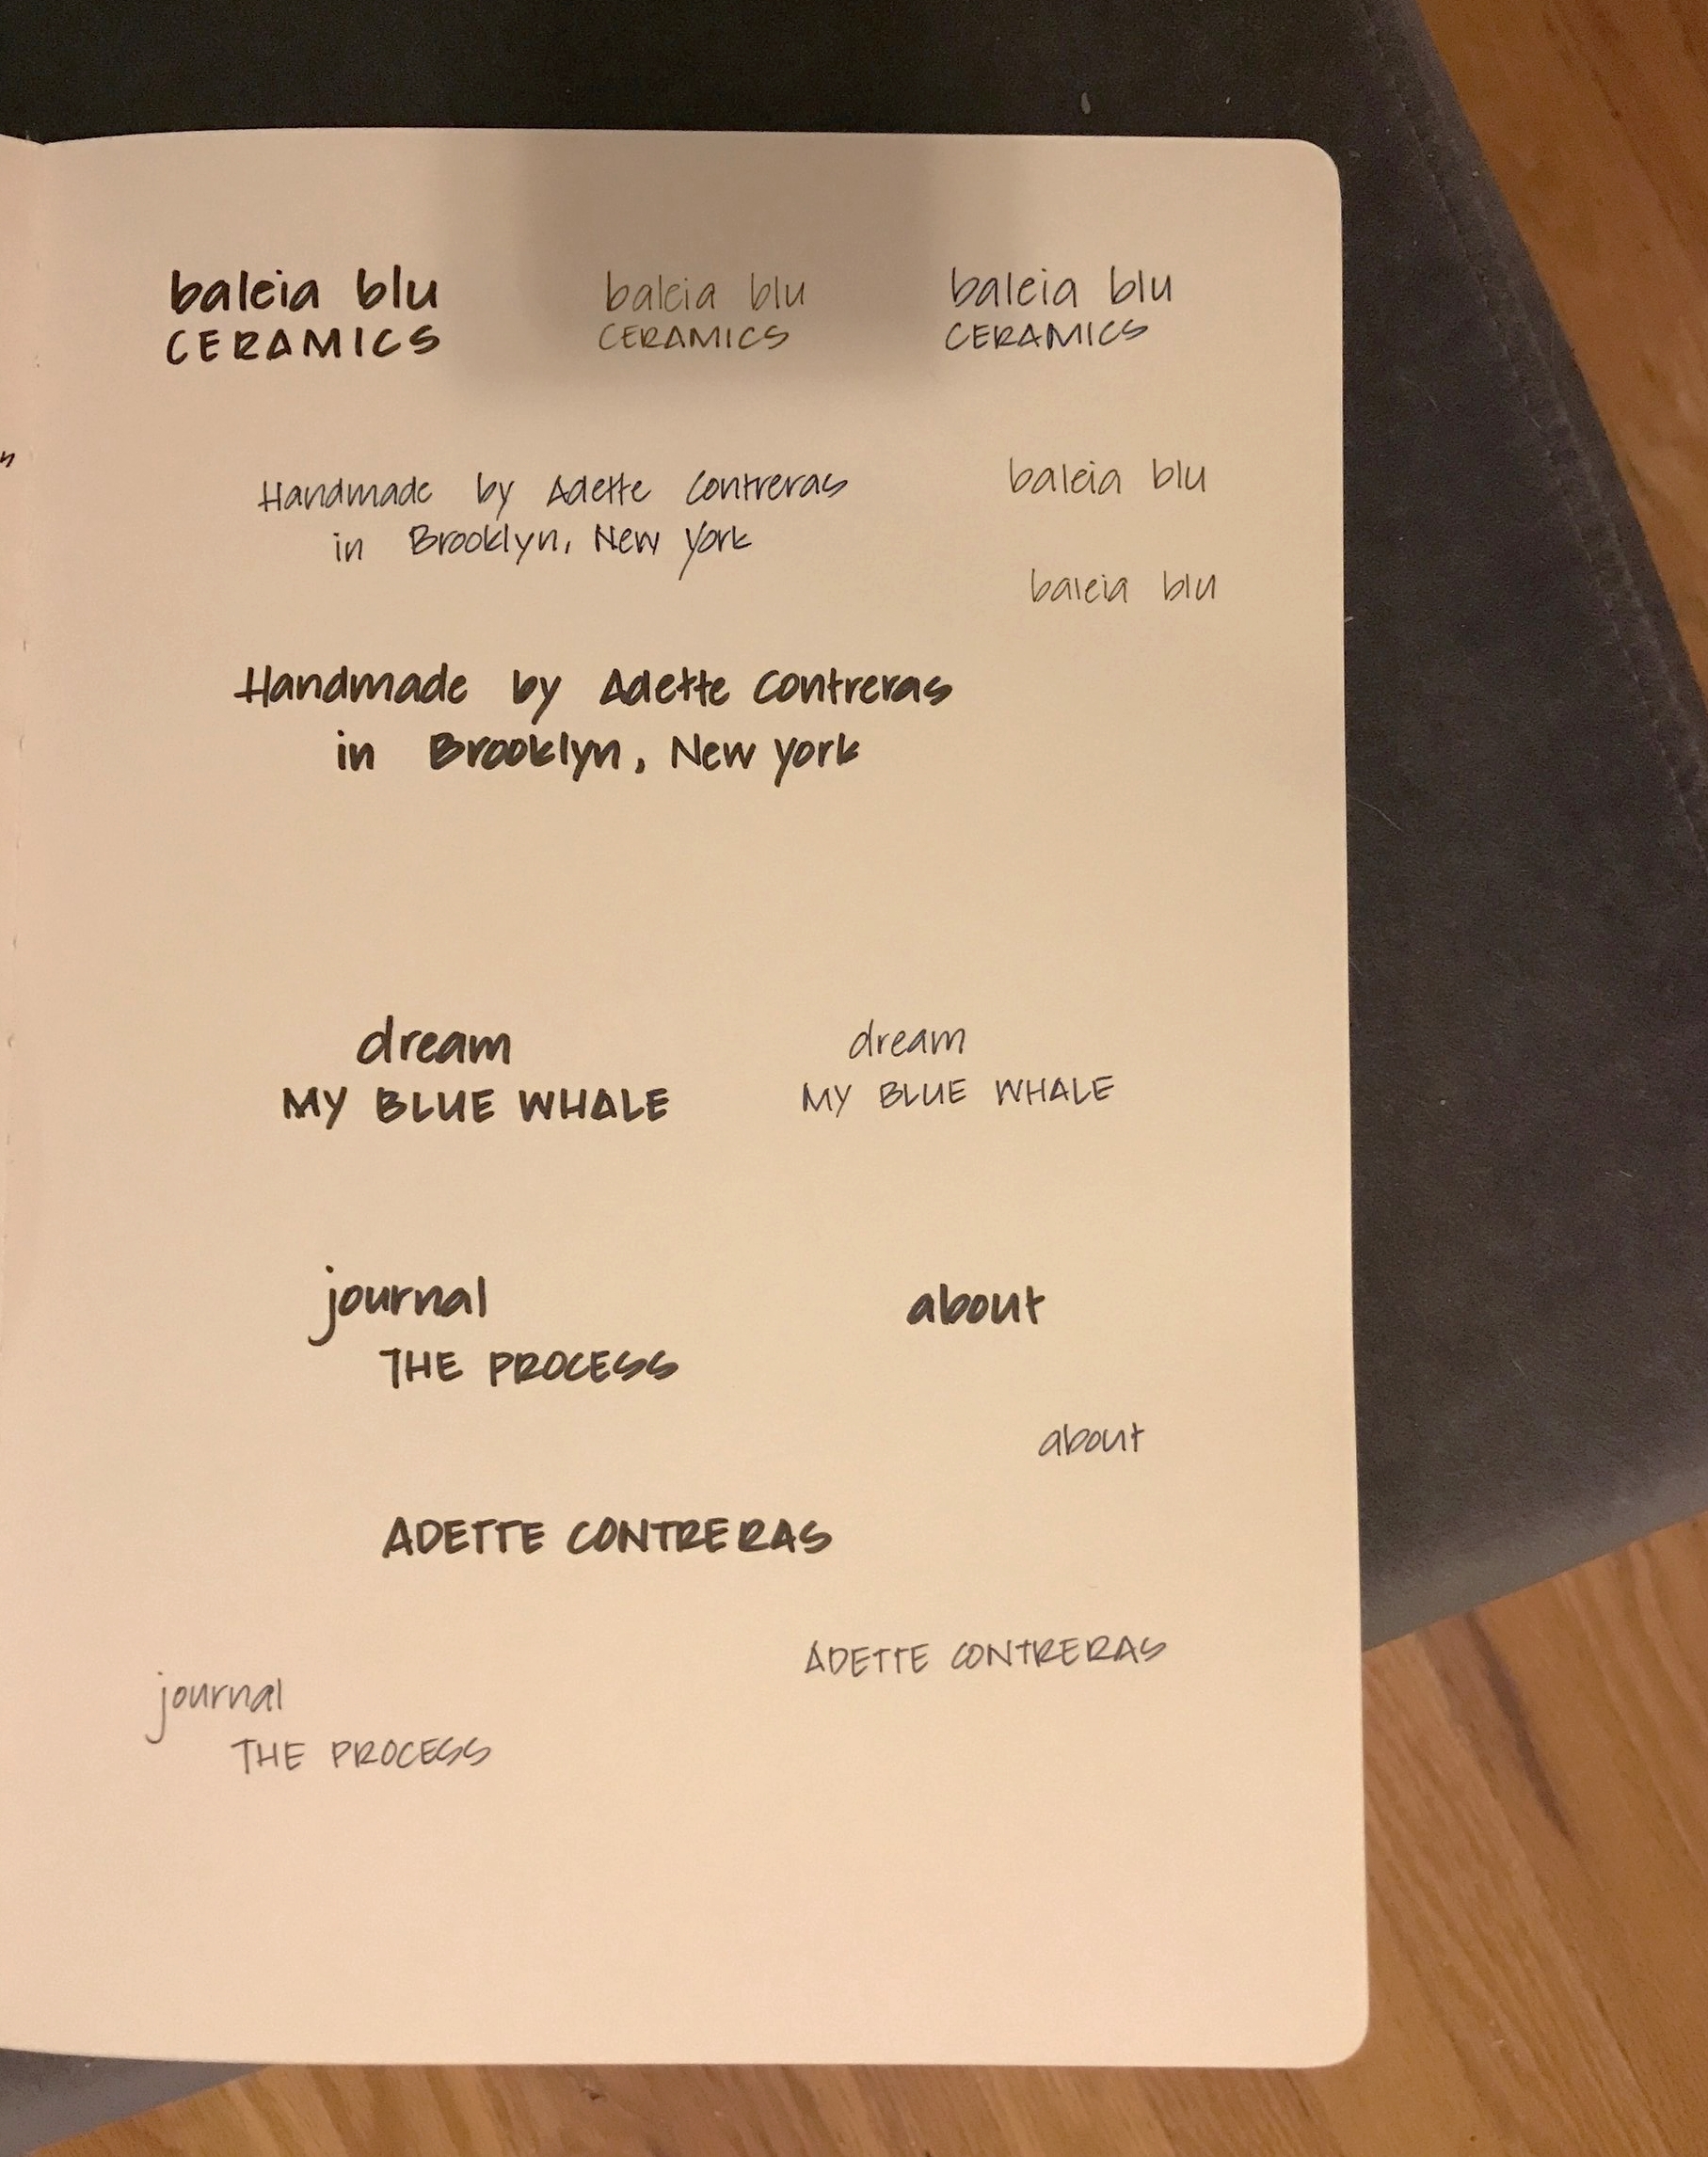 baleia blu
CERAMICS
baleia blu
CERAMICS
baleia blu
CERAMICS
Handmade by Adette Contreras
in Brooklyn, New York
baleia blu
baleia blu
Handmade by Adette Contreras
in Brooklyn, New York
dream
MY BLUE WHALE
dream
MY BLUE WHALE
journal
THE PROCESS
about
about
ADETTE CONTRERAS
ADETTE CONTRERAS
journal
THE PROCESS